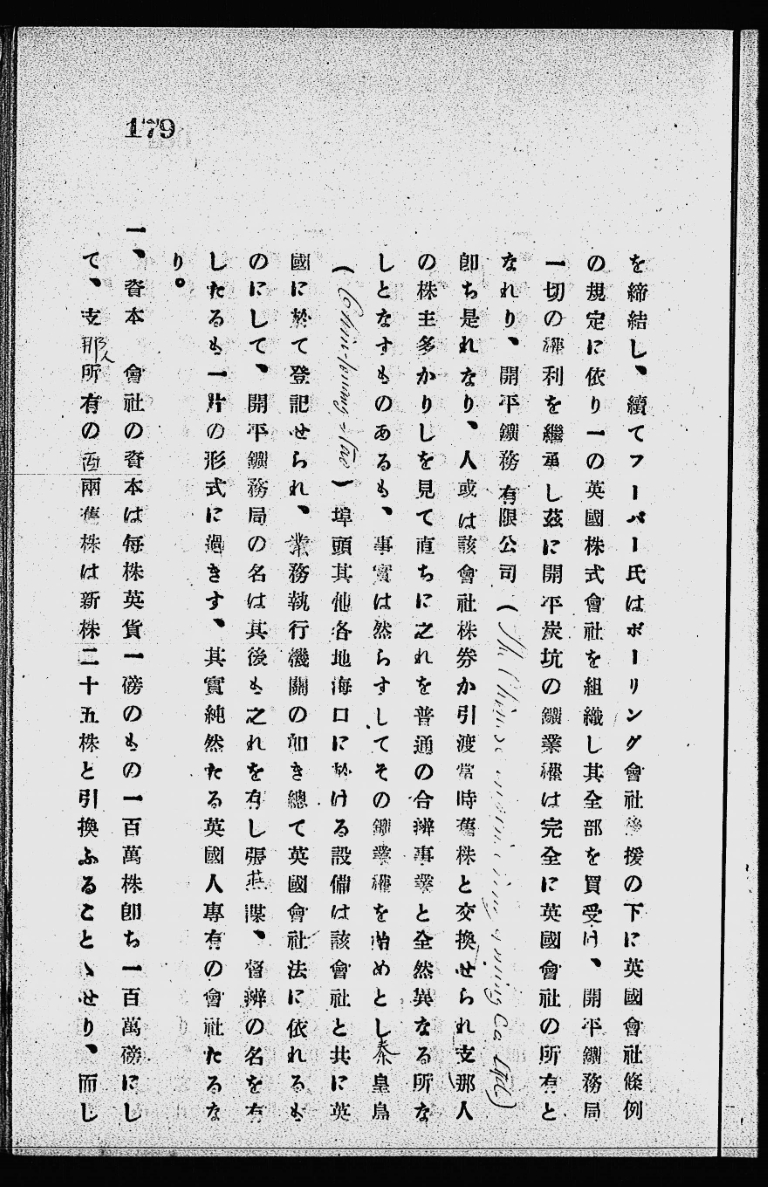 179
を締結し、續てフーバー氏はボーリング會社後援の下に英國會社條例
の規定に依り一の英國株式會社を組織し其全部を買受け、開平鑛務局
一切の權利を繼承し茲に開平炭坑の鑛業權は完全に英國會社の所有と
なれり、開平鑛務有限公司(The Chinese Engineering & mining Co. Ltd.)
卽ち是れなり、人或は該會社株券か引渡當時舊株と交換せられ支那人
の株主多かりしを見て直ちに之れを普通の合辨事業と全然異なる所な
しとなすものあるも、事實は然らすしてその鑛業權を始めとし秦皇島
(Chin-wang-tao)埠頭其他各地海口に於ける設備は該會社と共に英
國に於て登記せられ、業務執行機關の如き總て英國會社法に依れるも
のにして、開平鑛務局の名は其後も之れを有し張燕謀、督辨の名を有
したるも一片の形式に過きす、其實純然たる英國人專有の會社たるな
り。
一、資本 會社の資本は每株英貨一磅のもの一百萬株卽ち一百萬磅にし
て、支那人所有の百兩舊株は新株二十五株と引換ふることゝせり、而し